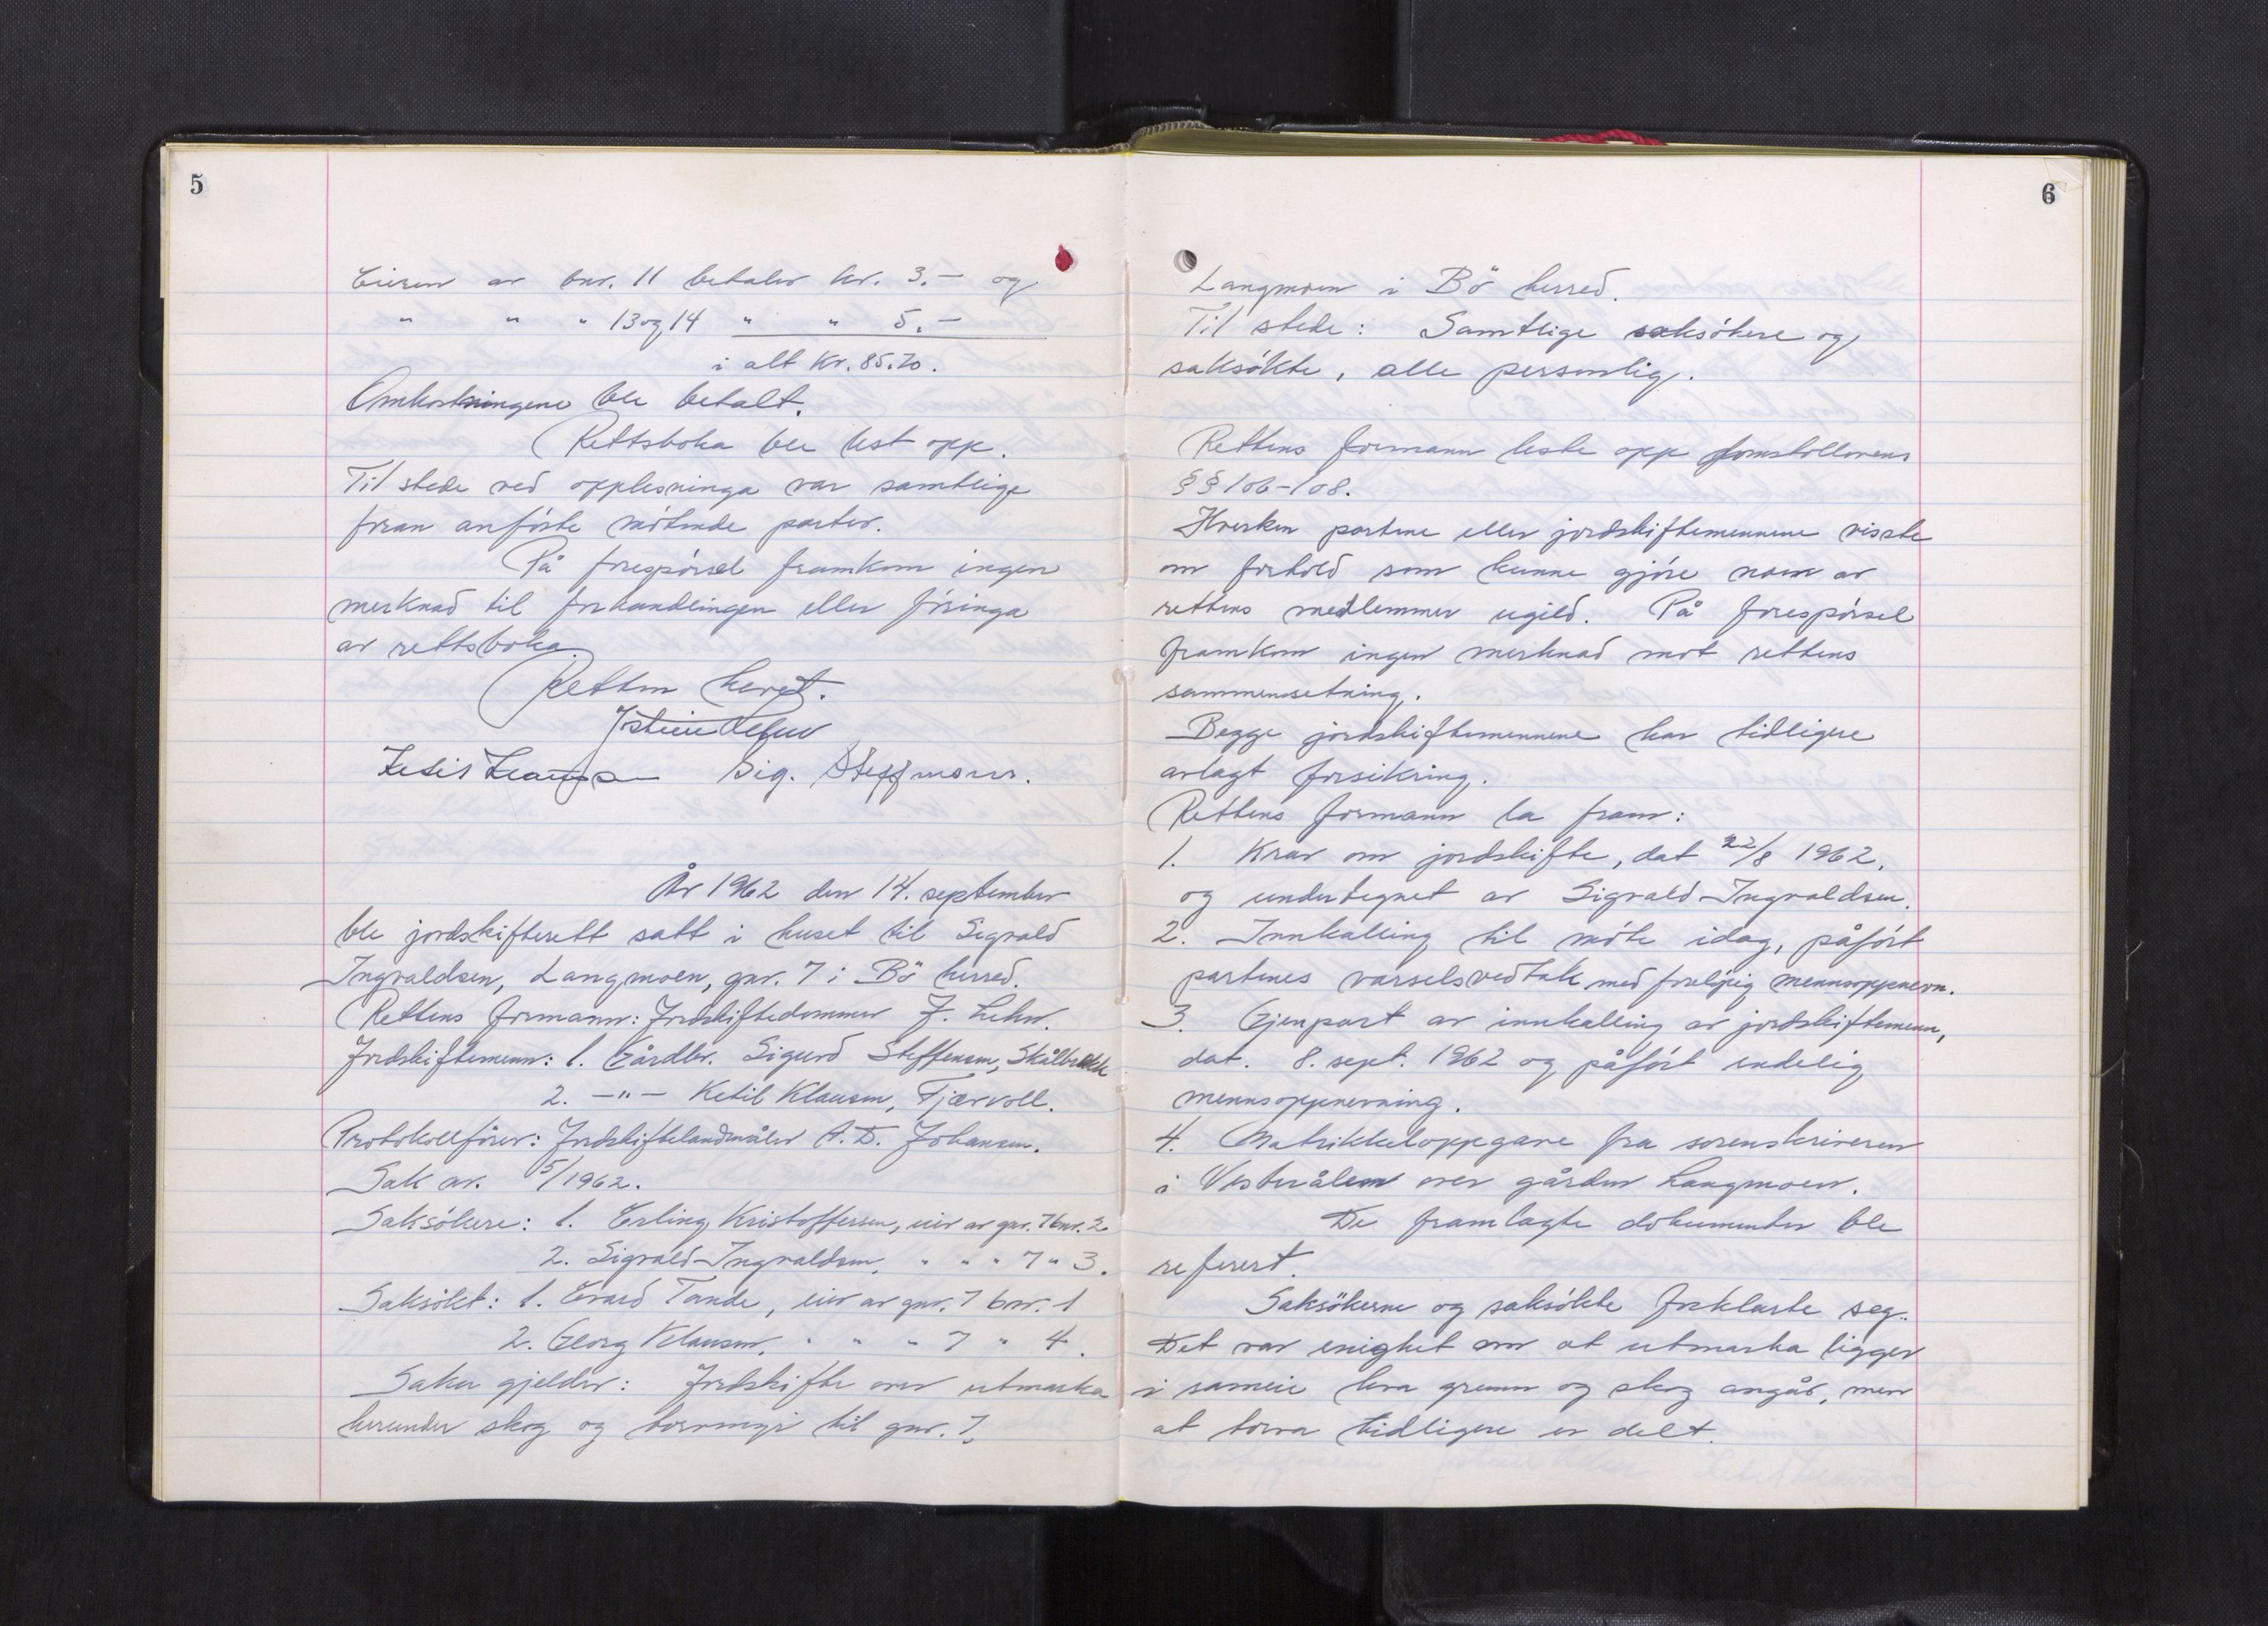 5
Eieren av bnr. 11 betaler kr. 3.- og
" " " 13 og 14 " " 5.-
i alt kr. 85.70.
Omkostningene ble betalt.
Rettsboka ble lest opp.
Til stede ved opplesninga var samtlige
foran anførte møtende parter.
På forespørsel framkom ingen
merknad til forhandlingen eller føringa
av rettsboka.
Retten hevet.
Jostein Lehn
Ketil Klausen Sig. Steffensen.
År 1962 den 14. september
ble jordskifterett satt i huset til Sigvald
Ingvaldsen, Langmoen, gnr. 7 i Bö herred.
Rettens formann: Jordskiftedommer J. Lehn.
Jordskiftemenn: 1. Gårdbr. Sigurd Steffensen, Skålbrekk
2. -"- Ketil Klausen, Fjærvoll.
Protokollfører: Jordskiftelandmåler A. D. Johansen.
Sak nr. 5/1962.
Saksökere: 1. Erling Kristoffersen, eier av gnr. 7 bnr. 2
2. Sigvald Ingvaldsen, " " " 7 " 3.
Saksökt: 1. Evard Tande, eier av gnr. 7 bnr. 1
2. Georg Klausen, " " " 7 " 4.
Saken gjelder: Jordskifte over utmarka
herunder skog og torvmyr til gnr. 7,
6
Langmoen i Bö herred.
Til stede: Samtlige saksökere og
saksökte, alle personlig.
Rettens formann leste opp domstollovens
§§ 106-108.
Hverken partene eller jordskiftemennene visste
om forhold som kunne gjøre noen av
rettens medlemmer ugild. På forespørsel
framkom ingen merknad mot rettens
sammensetning.
Begge jordskiftemennene har tidligere
avlagt forsikring.
Rettens formann la fram:
1. Krav om jordskifte, dat 22/8 1962,
og undertegnet av Sigvald Ingvaldsen.
2. Innkalling til møte idag, påført
partenes varselsvedtak med foreløpig mennsoppnevn.
3. Gjenpart av innkalling av jordskiftemenn,
dat. 8. sept. 1962 og påført endelig
mennsoppnevning.
4. Matrikkeloppgave fra sorenskriveren
i Vesterålen over gården Langmoen.
De framlagte dokumenter ble
referert.
Saksökerne og saksökte forklarte seg.
Det var enighet om at utmarka ligger
i sameie hva grunn og skog angår, men
at torva tidligere er delt.